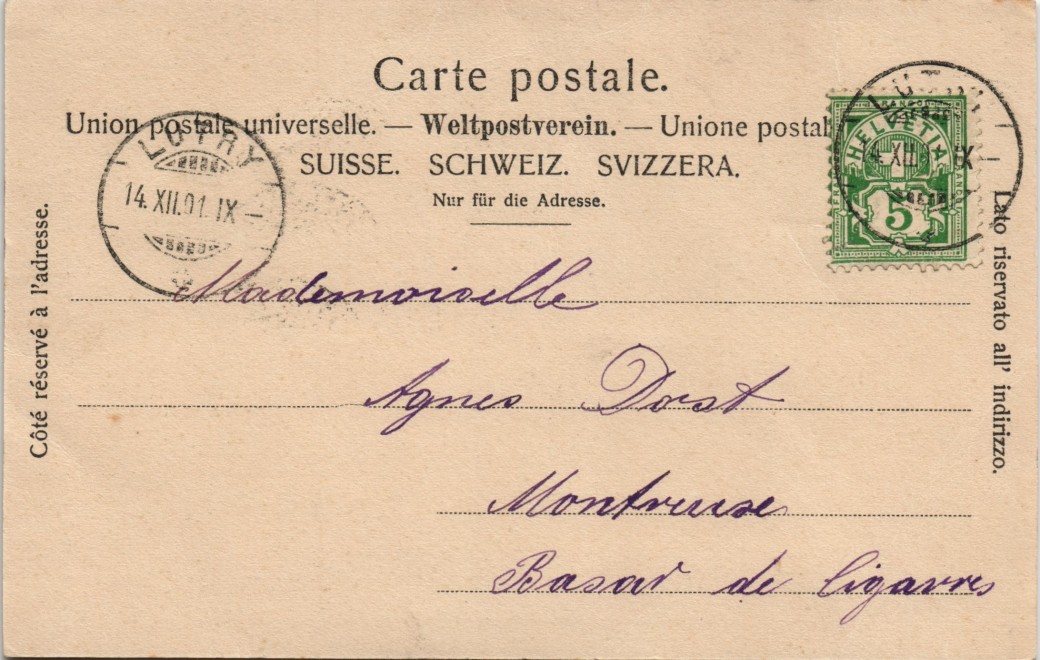 Carte postale.
Union postale universelle. — Weltpostverein. — Unione postal
SUISSE. SCHWEIZ. SVIZZERA.
Nur für die Adresse.
LUTRY
14.XII.01.IX
HELVETIA
FRANCO
5
Côté réservé à l'adresse.
Lato riservato all' indirizzo.
Mademoiselle
Agnes Dorst
Montreuse
Basar de Cigarres